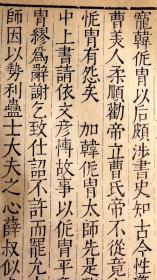 寵韓侂胄以后頗涉書史知古今性
曹美人柔順勸帝立曹氏帝不從竟
侂胄有怨矣　加韓侂胄太師先是
中上書請依文彥博故事以侂胄平
胄繆爲辭謝乞致仕詔不許而罷允
師因以勢利蠱士大夫之心薛叔似